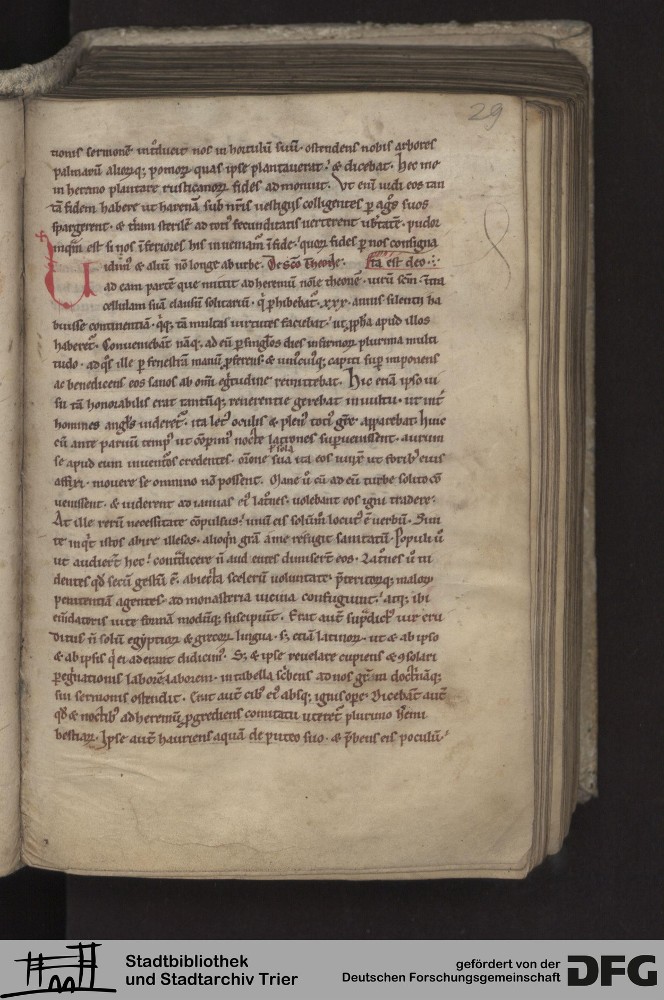 29
tionis sermonē int᷑ducit nos in hortulū suū. ostendens nobis arbores
palmarū aliorq; pomoꝝ quas ipse plantauerat. & dicebat. Hec me
in heremo plantare rusticanoꝝ fides admonuit. Vt enī uidi eos tan
tā fidem habere ut harenā sub nr̄is uestigiis colligentes ꝑ agͦs suos
spargerent. & t̓ram sterilē ad totiꝰ fecunditatis uerterent ub̓tatē. pudor
inqͣm est si nos inferiores his inueniam̄ ī fide. quoꝝ fides ꝑ nos
idimꝰ & aliū nō longe ab urbe. De Sc̄o Theone. sta est deo
ad eam partē que mittit ad heremū noīe theonē. uirū sc̄m. intra
cellulam suā clausū solitariū. qͥ ꝑhibebat᷑ .xxx. annis silentii ha
buisse continentiā. tā multas uirtutes faciebat. ut ꝓph̄a apud illos
haberet᷑. Conueniebant nāq. ad eū ꝑ singlos dies infirmoꝝ plurima multi
tudo. ad qͦs ille ꝑ fenestrā manū ꝓferens. & unicuiq; capiti suꝑ imponens
ac benedicens eos sanos ab om̄i egͥtudine remittebat. Hic etiā ipso ui
su tā honorabilis erat tantūq; reuerentie gerebat in uultu. ut int̓
homines anglꝰ uideret᷑. ita letꝰ oculis & plenꝰ totiꝰ gr̄e apparebat. Huic
cū ante paruū tempꝰ ut cōperimꝰ nocte latrones supuenissent. aurum
se apud eum inuentos credentes. or̄one sola sua ita eos uinxit ut foribꝰ eius
affixi. mouere se omnino nō possent. Mane ū cū ad eū turbe solito cō
uenissent. & uiderent ad ianuas eiꝰ lat̓nes. uolebant eos igni tradere.
At ille rerū necessitate cōpulsus. unū eis solūm locutꝰ ē uerbū. Sini
te inqͥt istos abire illesos. alioqͥn grā a me refugit sanitatū. Populi ū
ut audiert̄ hec. contͣdicere n̄ audentes dimisert̄ eos. Latͦnes ū ui
dentes qd̄ secū gestū ē. abiecta scelerū uoluntate. p̄teritorūq; maloꝝ
penitentiā agentes. ad monasteria uicina confugiunt. atq; ibi
em̄datioris uite formā modūq; suscipiunt. Erat aut̄ sup̄dictꝰ uir eru
ditus n̄ solū egyptioꝝ & grecoꝝ lingua. s; etiā latinoꝝ. ut & ab ipso
& ab ipsis qͥ ei aderant didicimꝰ. S; & ipse reuelare cupiens & ꝯsolari
ꝑegͥnationis laborē in tabella sc̓bens ad nos grām doctͥnāq;
sui sermonis ostendit. Erat aut̄ cibꝰ eiꝰ absq; ignis ope. Dicebant aut̄
qd̄ & noctibꝰ ad heremū ꝓgrediens comitatu uteret᷑ plurimo heremi
bestiaꝝ. Ipse aut̄ hauriens aquā de puteo suo. & p̄bens eis poculū.
Stadtbibliothek
und Stadtarchiv Trier
gefördert von der
Deutschen Forschungsgemeinschaft
DFG